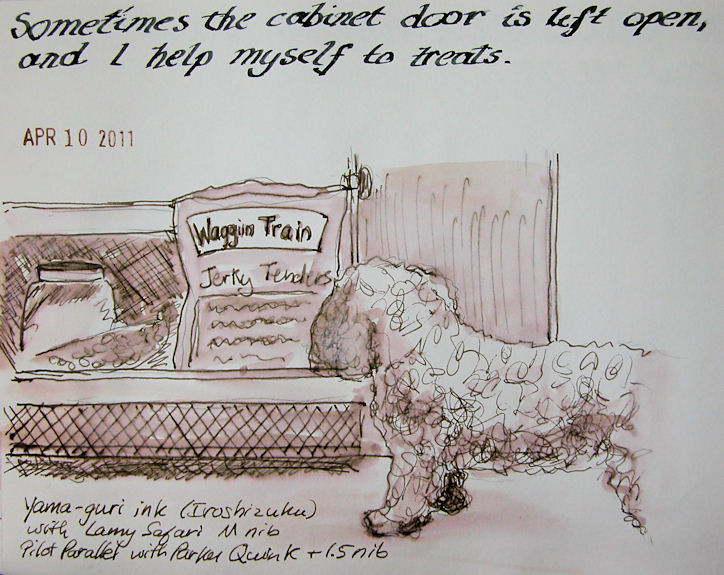 Sometimes the cabinet door is left open,
and I help myself to treats.
APR 10 2011
Waggin Train
Jerky Tenders
Yama-guri ink (Iroshizuku)
with Lamy Safari M nib
Pilot Parallel with Parker Quink + 1.5 nib